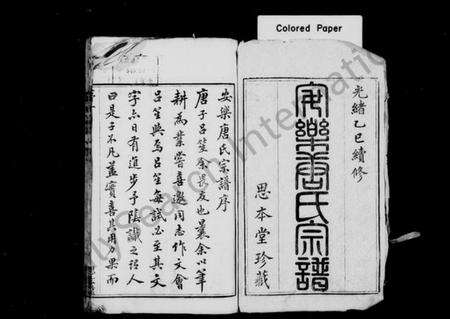 Colored Paper
光緒乙巳續修
安樂唐氏宗譜
思本堂珍藏
安樂唐氏宗譜序
唐子呂笙余畏友也曩余以筆
耕為業嘗喜邀同志作文會
呂笙與焉呂笙每試必至其文
字亦日有進步予陰識之語人
曰是子不凡蓋實喜其用力果而